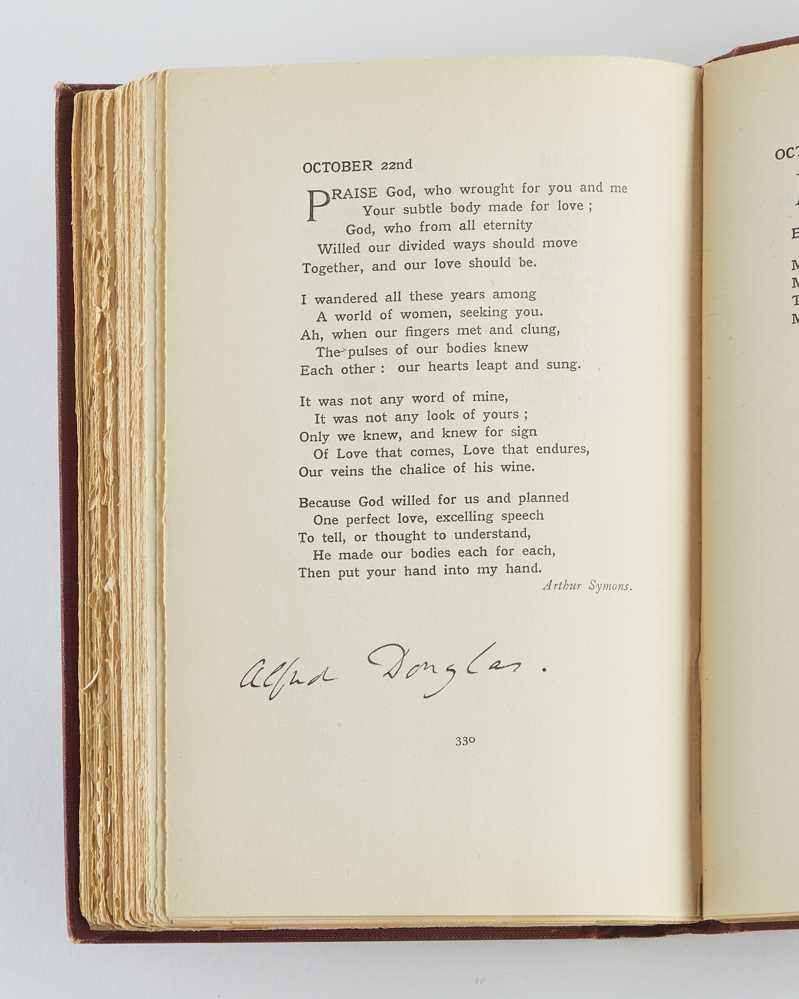 OCTOBER 22nd
PRAISE God, who wrought for you and me
Your subtle body made for love ;
God, who from all eternity
Willed our divided ways should move
Together, and our love should be.
I wandered all these years among
A world of women, seeking you.
Ah, when our fingers met and clung,
The pulses of our bodies knew
Each other : our hearts leapt and sung.
It was not any word of mine,
It was not any look of yours ;
Only we knew, and knew for sign
Of Love that comes, Love that endures,
Our veins the chalice of his wine.
Because God willed for us and planned
One perfect love, excelling speech
To tell, or thought to understand,
He made our bodies each for each,
Then put your hand into my hand.
Arthur Symons.
Alfred Douglas.
330